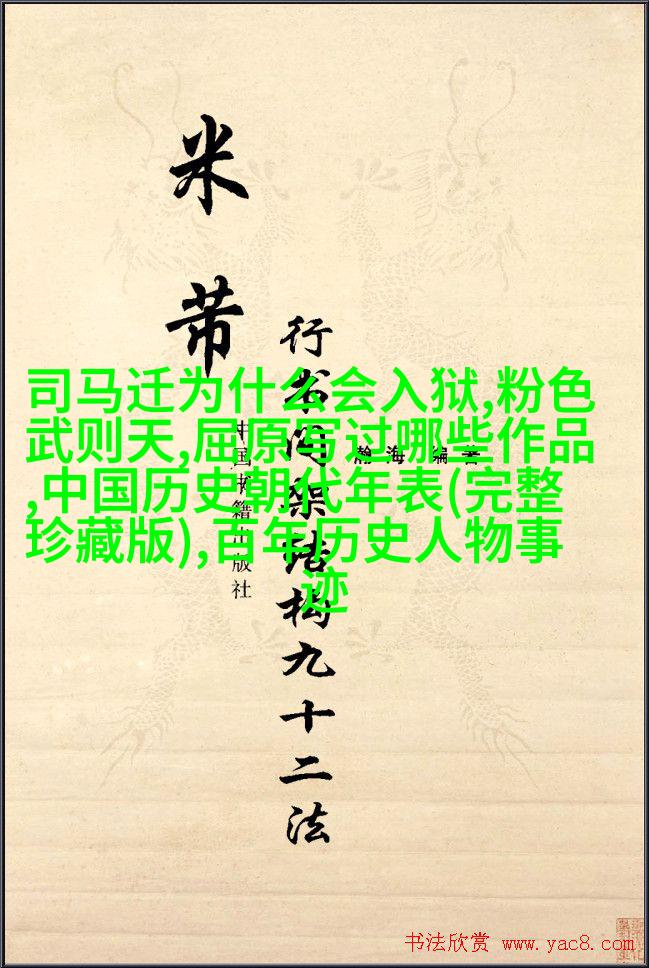 米芾
行书间架结构九十二法
瀚海 编著
中国书籍出版社
司马迁为什么会入狱,粉色
武则天,屈原写过哪些作品
,中国历史朝代年表(完整
珍藏版),百年历史人物事
迹
书法欣赏 www.yac8.com